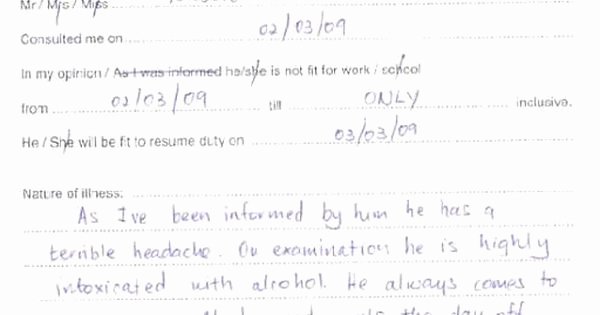 Mr / Mrs / Miss
Consulted me on 02/03/09
In my opinion / As I was informed he/she is not fit for work / school
from 02/03/09 till ONLY inclusive.
He / She will be fit to resume duty on 03/03/09
Nature of illness:
As I've been informed by him he has a
terrible headache. On examination he is highly
intoxicated with alcohol. He always comes to
the day off